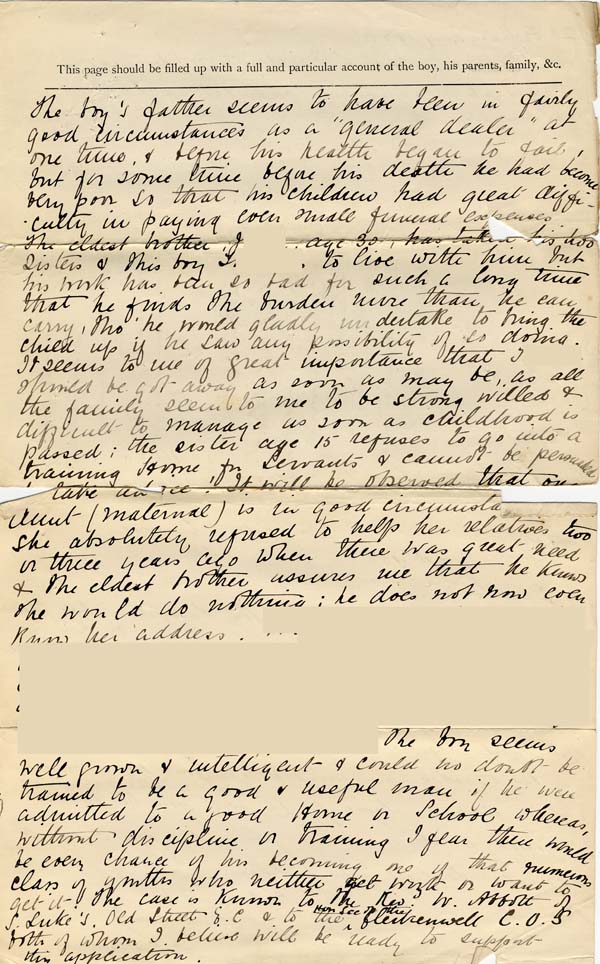 This page should be filled up with a full and particular account of the boy, his parents, family, &c.
The boy's father seems to have been in fairly
good circumstances as a "general dealer" at
one time, & before his health began to fail,
but for some time before his death he had become
very poor so that his children had great diffi-
-culty in paying even small funeral expenses
The eldest brother J age 30, has taken his two
sisters & this boy I. to live with him but
his work has been so bad for such a long time
that he finds the burden more than he can
carry, tho' he would gladly undertake to bring the
child up if he saw any possibility of so doing.
It seems to me of great importance that I
should be got away as soon as may be, as all
the family seem to me to be strong willed &
difficult to manage as soon as childhood is
passed; the sister age 15 refuses to go into a
training Home for Servants & cannot be persuaded
take advice. It will be observed that one
Aunt (maternal) is in good circumsta
she absolutely refused to help her relatives two
or three years ago when there was great need
& the eldest brother assures me that he knows
she would do nothing; he does not now even
know her address. . . .
The boy seems
well grown & intelligent & could no doubt be
trained to be a good & useful man if he were
admitted to a good Home or School whereas,
without discipline or training I fear there would
be every chance of his becoming one of that numerous
class of youths who neither get work or want to
get it. The case is known to The Rev. W. Abbott of
S. Luke's, Old Street E.C & to the Hon Sec of the Clerkenwell C.O.S
both of whom I believe will be ready to support
this application.